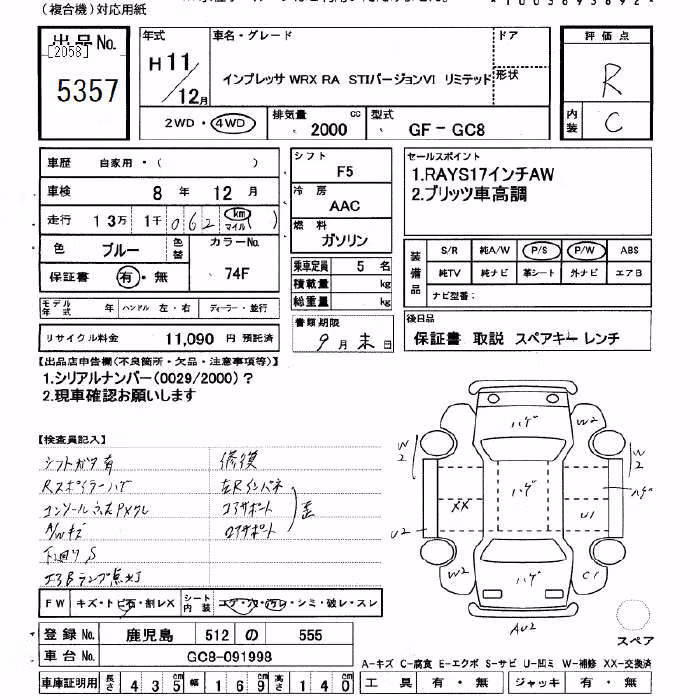 (複合機)対応用紙
出品No.
[2058]
5357
年式
H 11/12月
車名・グレード
インプレッサ WRX RA STIバージョンVI リミテッド
ドア
形状
評価点
R
内装
C
2WD・4WD
排気量
2000
cc
型式
GF-GC8
車歴 自家用・( )
車検 8年 12月
走行 13万 1千 062 km マイル ( )
色 ブルー
色替
カラーNo.
74F
保証書 有・無
モデル年式 年 ハンドル 左・右 ディーラー・並行
リサイクル料金 11,090 円 預託済
シフト
F5
冷房
AAC
燃料
ガソリン
乗車定員 5 名
積載量 kg
総重量 kg
書類期限
9月末日
セールスポイント
1.RAYS17インチAW
2.ブリッツ車高調
装備品
S/R 純A/W P/S P/W ABS
純TV 純ナビ 革シート 外ナビ エアB
ナビ型番:
後日品
保証書 取説 スペアキー レンチ
【出品店申告欄(不良箇所・欠品・注意事項等)】
1.シリアルナンバー(0029/2000)?
2.現車確認お願いします
【検査員記入】
シフトガタ有
Rスポイラーハゲ
A/Wキズ
下回りS
エアBランプ点灯
修復
左Rインパネ
コアサポート
ロアサポート
歪
ハゲ
W2
W2
W2
ハゲ
ハゲ
XX
U1
U2
W2
ハゲ
C1
AU2
スペア
FW キズ・トビ石・割レX
シート内装
コゲ・穴・汚レ・シミ・破レ・スレ
登録No. 鹿児島 512 の 555
車台No. GC8-091998
車庫証明用 長さ 435 cm 幅 169 cm 高さ 140 cm
A-キズ C-腐食 E-エクボ S-サビ U-凹ミ W-補修 XX-交換済
工具 有・無 ジャッキ 有・無